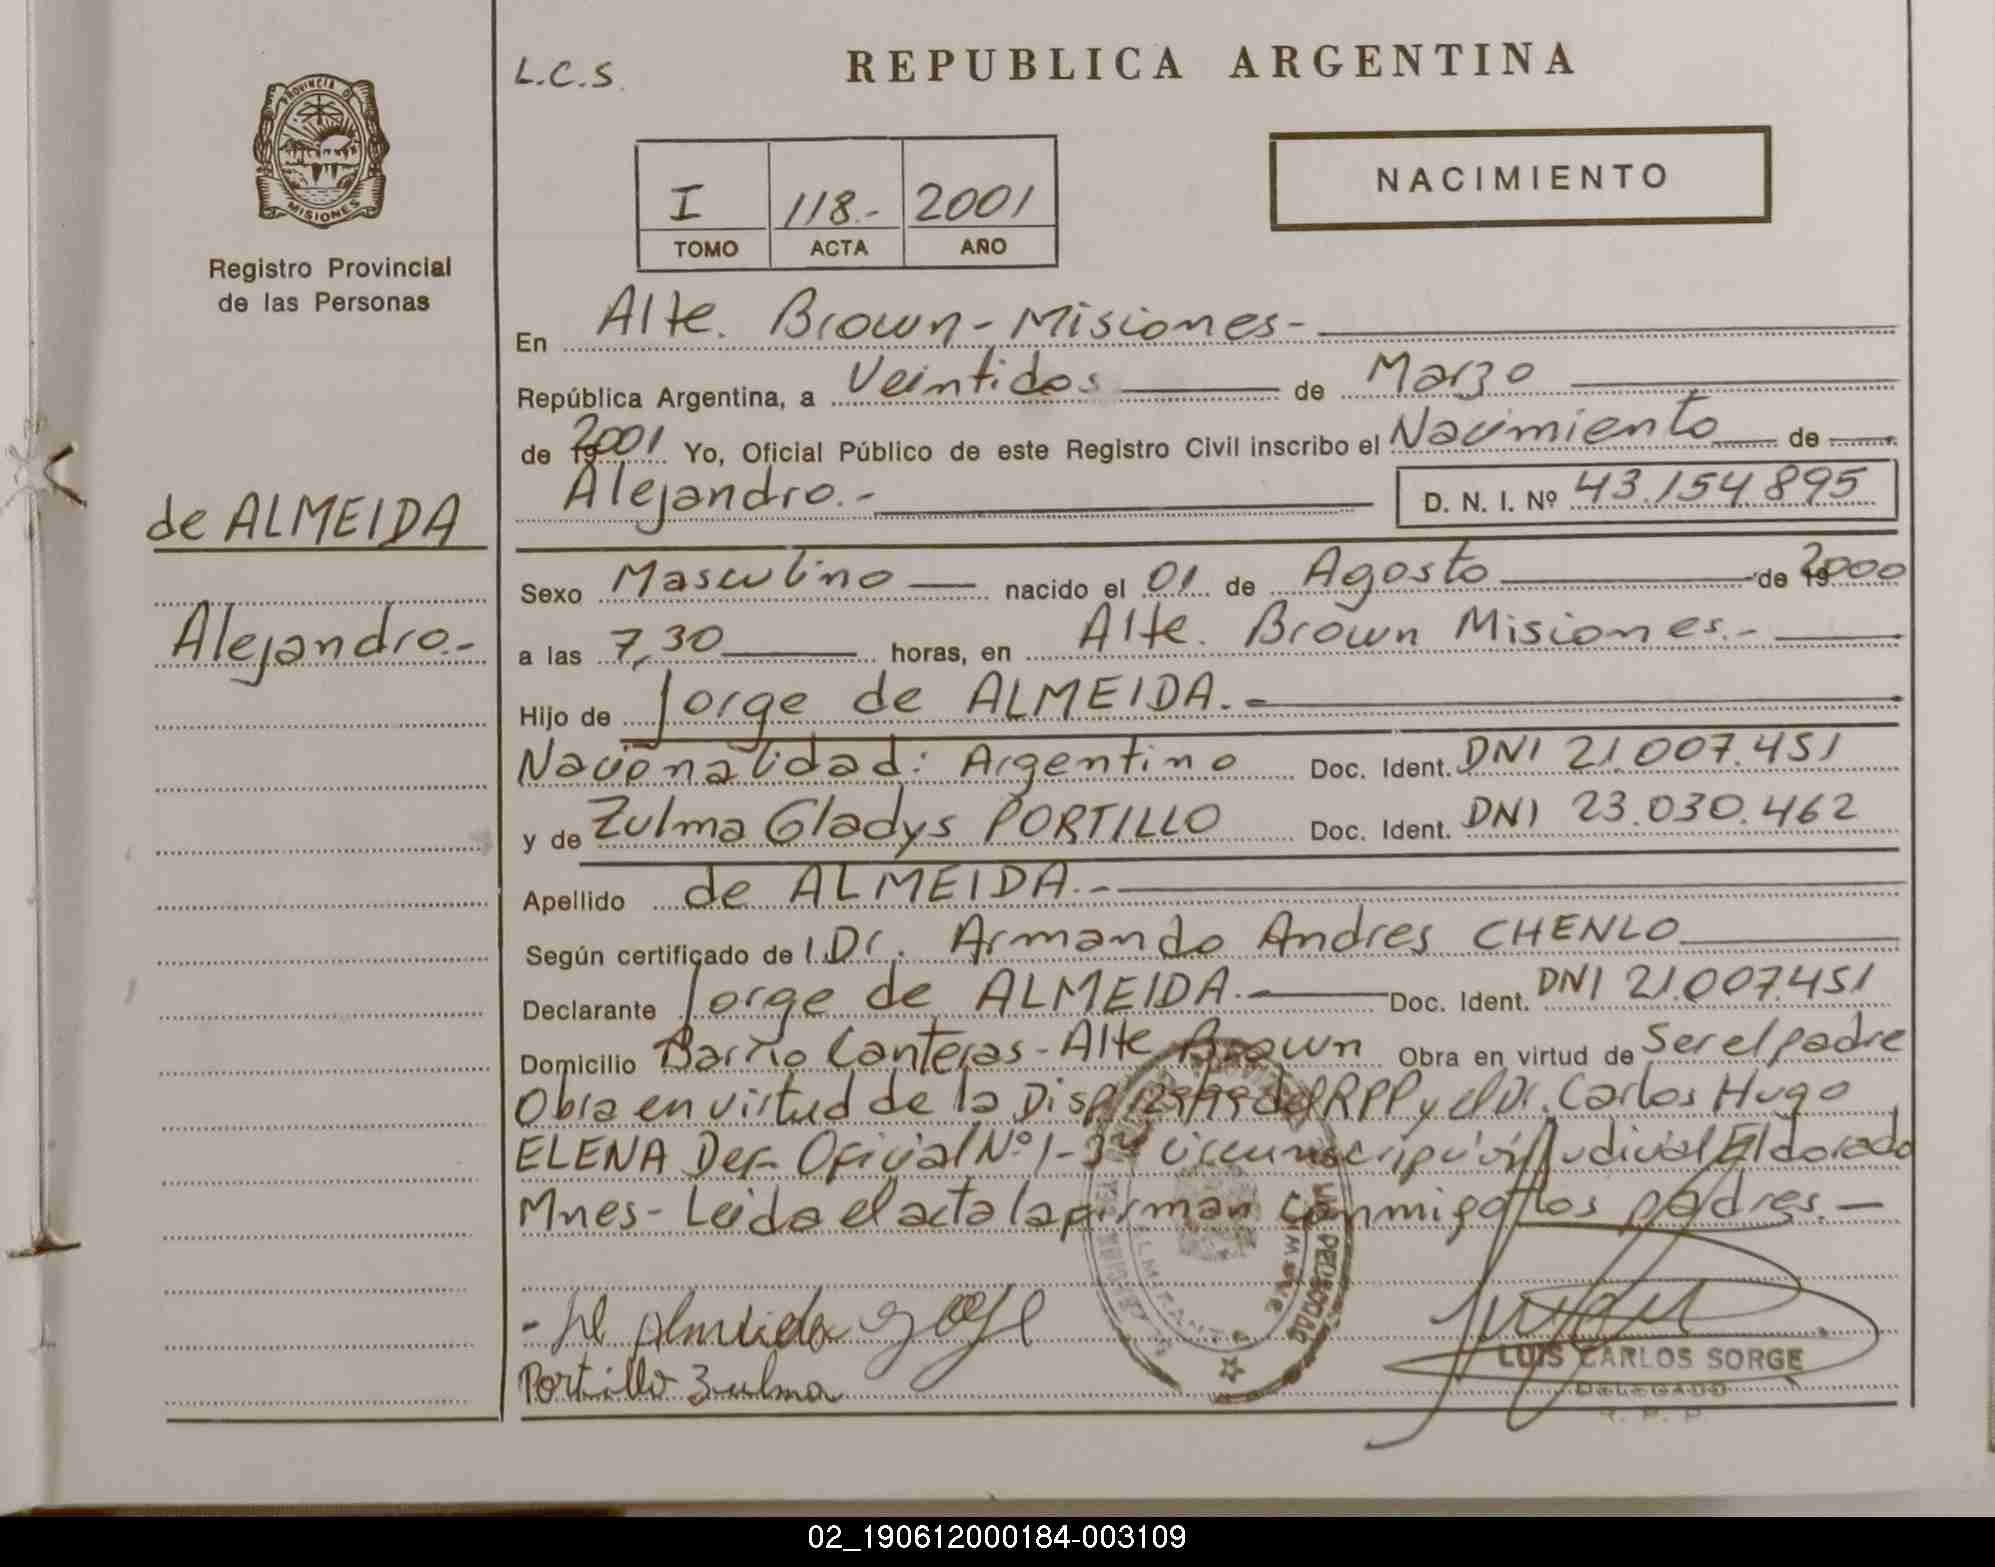 L.C.S.
REPUBLICA ARGENTINA
PROVINCIA DE
MISIONES
Registro Provincial
de las Personas
I 118.- 2001
TOMO ACTA AÑO
NACIMIENTO
En Alte. Brown - Misiones -
República Argentina, a Veintidos de Marzo
de 2001 Yo, Oficial Público de este Registro Civil inscribo el Nacimiento de
Alejandro.- D. N. I. Nº 43.154.895
de ALMEIDA
Alejandro.-
Sexo Masculino nacido el 01 de Agosto de 2000
a las 7,30 horas, en Alte. Brown Misiones.-
Hijo de Jorge de ALMEIDA.-
Nacionalidad: Argentino Doc. Ident. DNI 21.007.451
y de Zulma Gladys PORTILLO Doc. Ident. DNI 23.030.462
Apellido de ALMEIDA.-
Según certificado de l Dr. Armando Andres CHENLO
Declarante Jorge de ALMEIDA.- Doc. Ident. DNI 21.007.451
Domicilio Barrio Canteras - Alte Brown Obra en virtud de Ser el padre
Obra en virtud de la Disp. del RPP y el Dr. Carlos Hugo
ELENA Def. Oficial Nº 1 - 3ª circunscripción Judicial Eldorado
Mnes - Leida el acta la firman conmigo los padres.-
Portillo Zulma
LUIS CARLOS SORGE
DELEGADO
R. P. P.
02_190612000184-003109